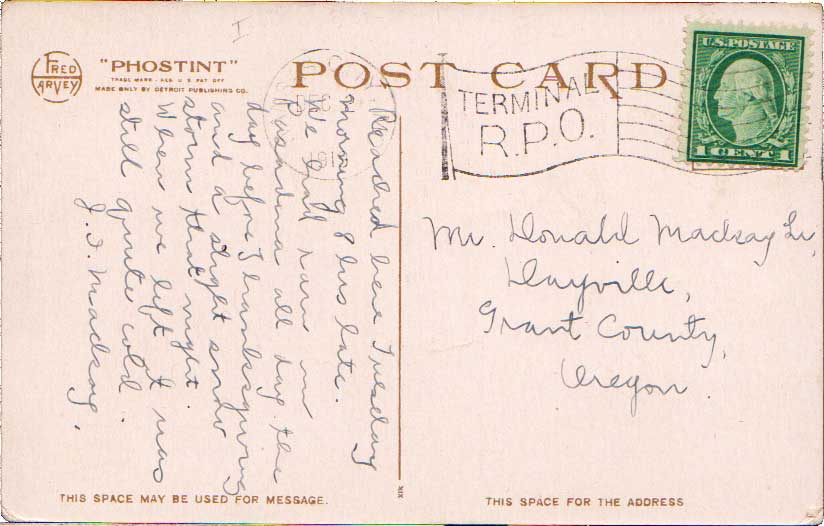 FRED
HARVEY
"PHOSTINT"
TRADE MARK-REG U S PAT OFF
MADE ONLY BY DETROIT PUBLISHING CO.
POST CARD
DEC
TERMINAL
R.P.O.
U.S. POSTAGE
1 CENT 1
Reached here Tuesday
morning 8 hrs late.
We had rain in
Pasadena all day the
day before Thanksgiving
and a slight snow
storm that night.
When we left it was
still quite cold
Mackay.
Mr. Donald Mackay
Dayville,
Grant County,
Oregon.
THIS SPACE MAY BE USED FOR MESSAGE.
XIX
THIS SPACE FOR THE ADDRESS